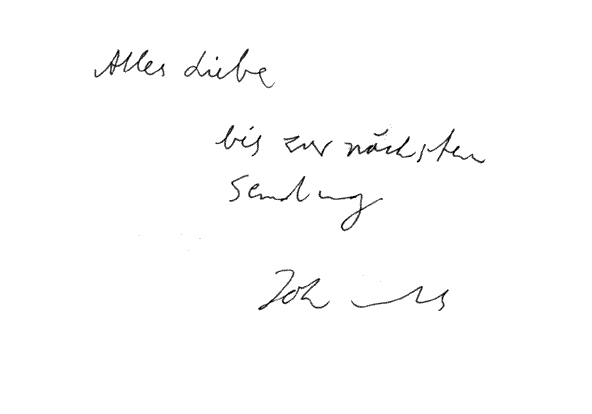 Alles Liebe
bis zur nächsten
Sendung
Johannes